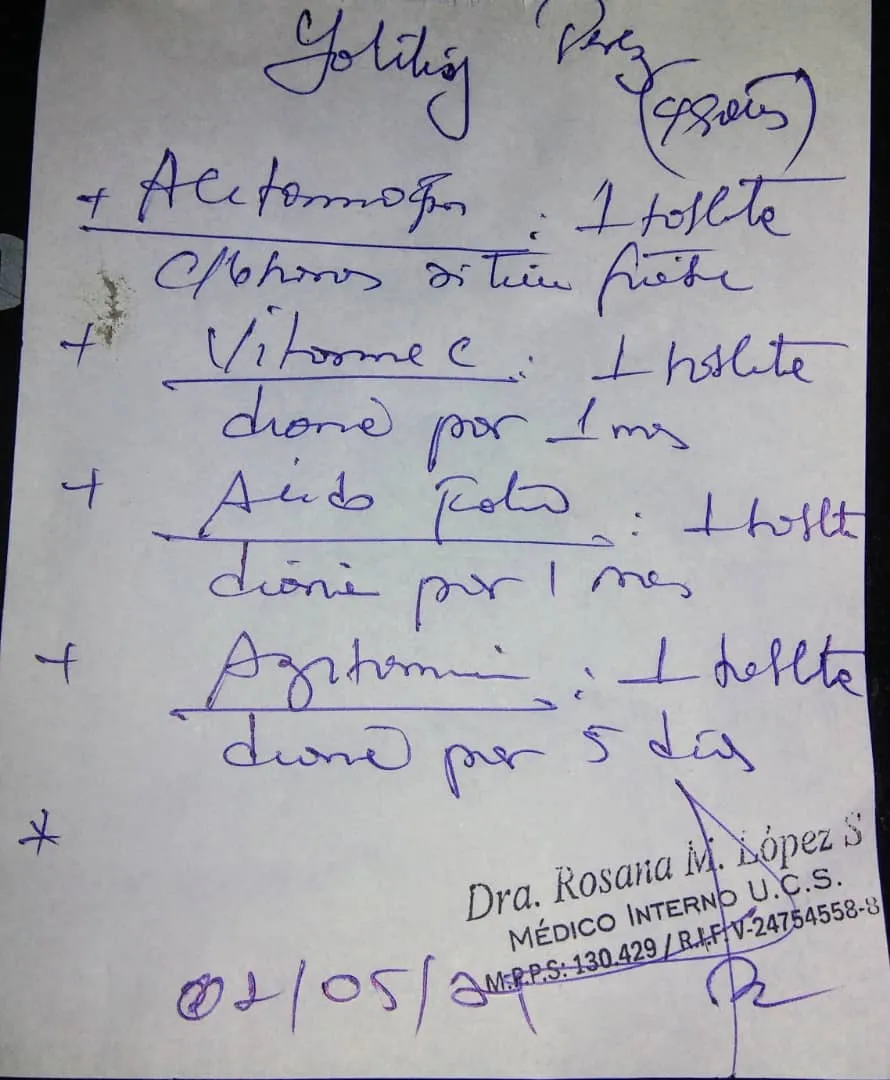 Perez
+ Acetaminofen : 1 tableta
c/6 horas si tiene fiebre
+ Vitamina C : 1 tableta
diaria por 1 mes
+ Acido Folico : 1 tableta
diaria por 1 mes
+ Azitromicina : 1 tableta
diaria por 5 días
*
Dra. Rosana M. López S
MÉDICO INTERNO U.C.S.
M.P.P.S: 130.429 / R.I.F: V-24754558-8
02/05/